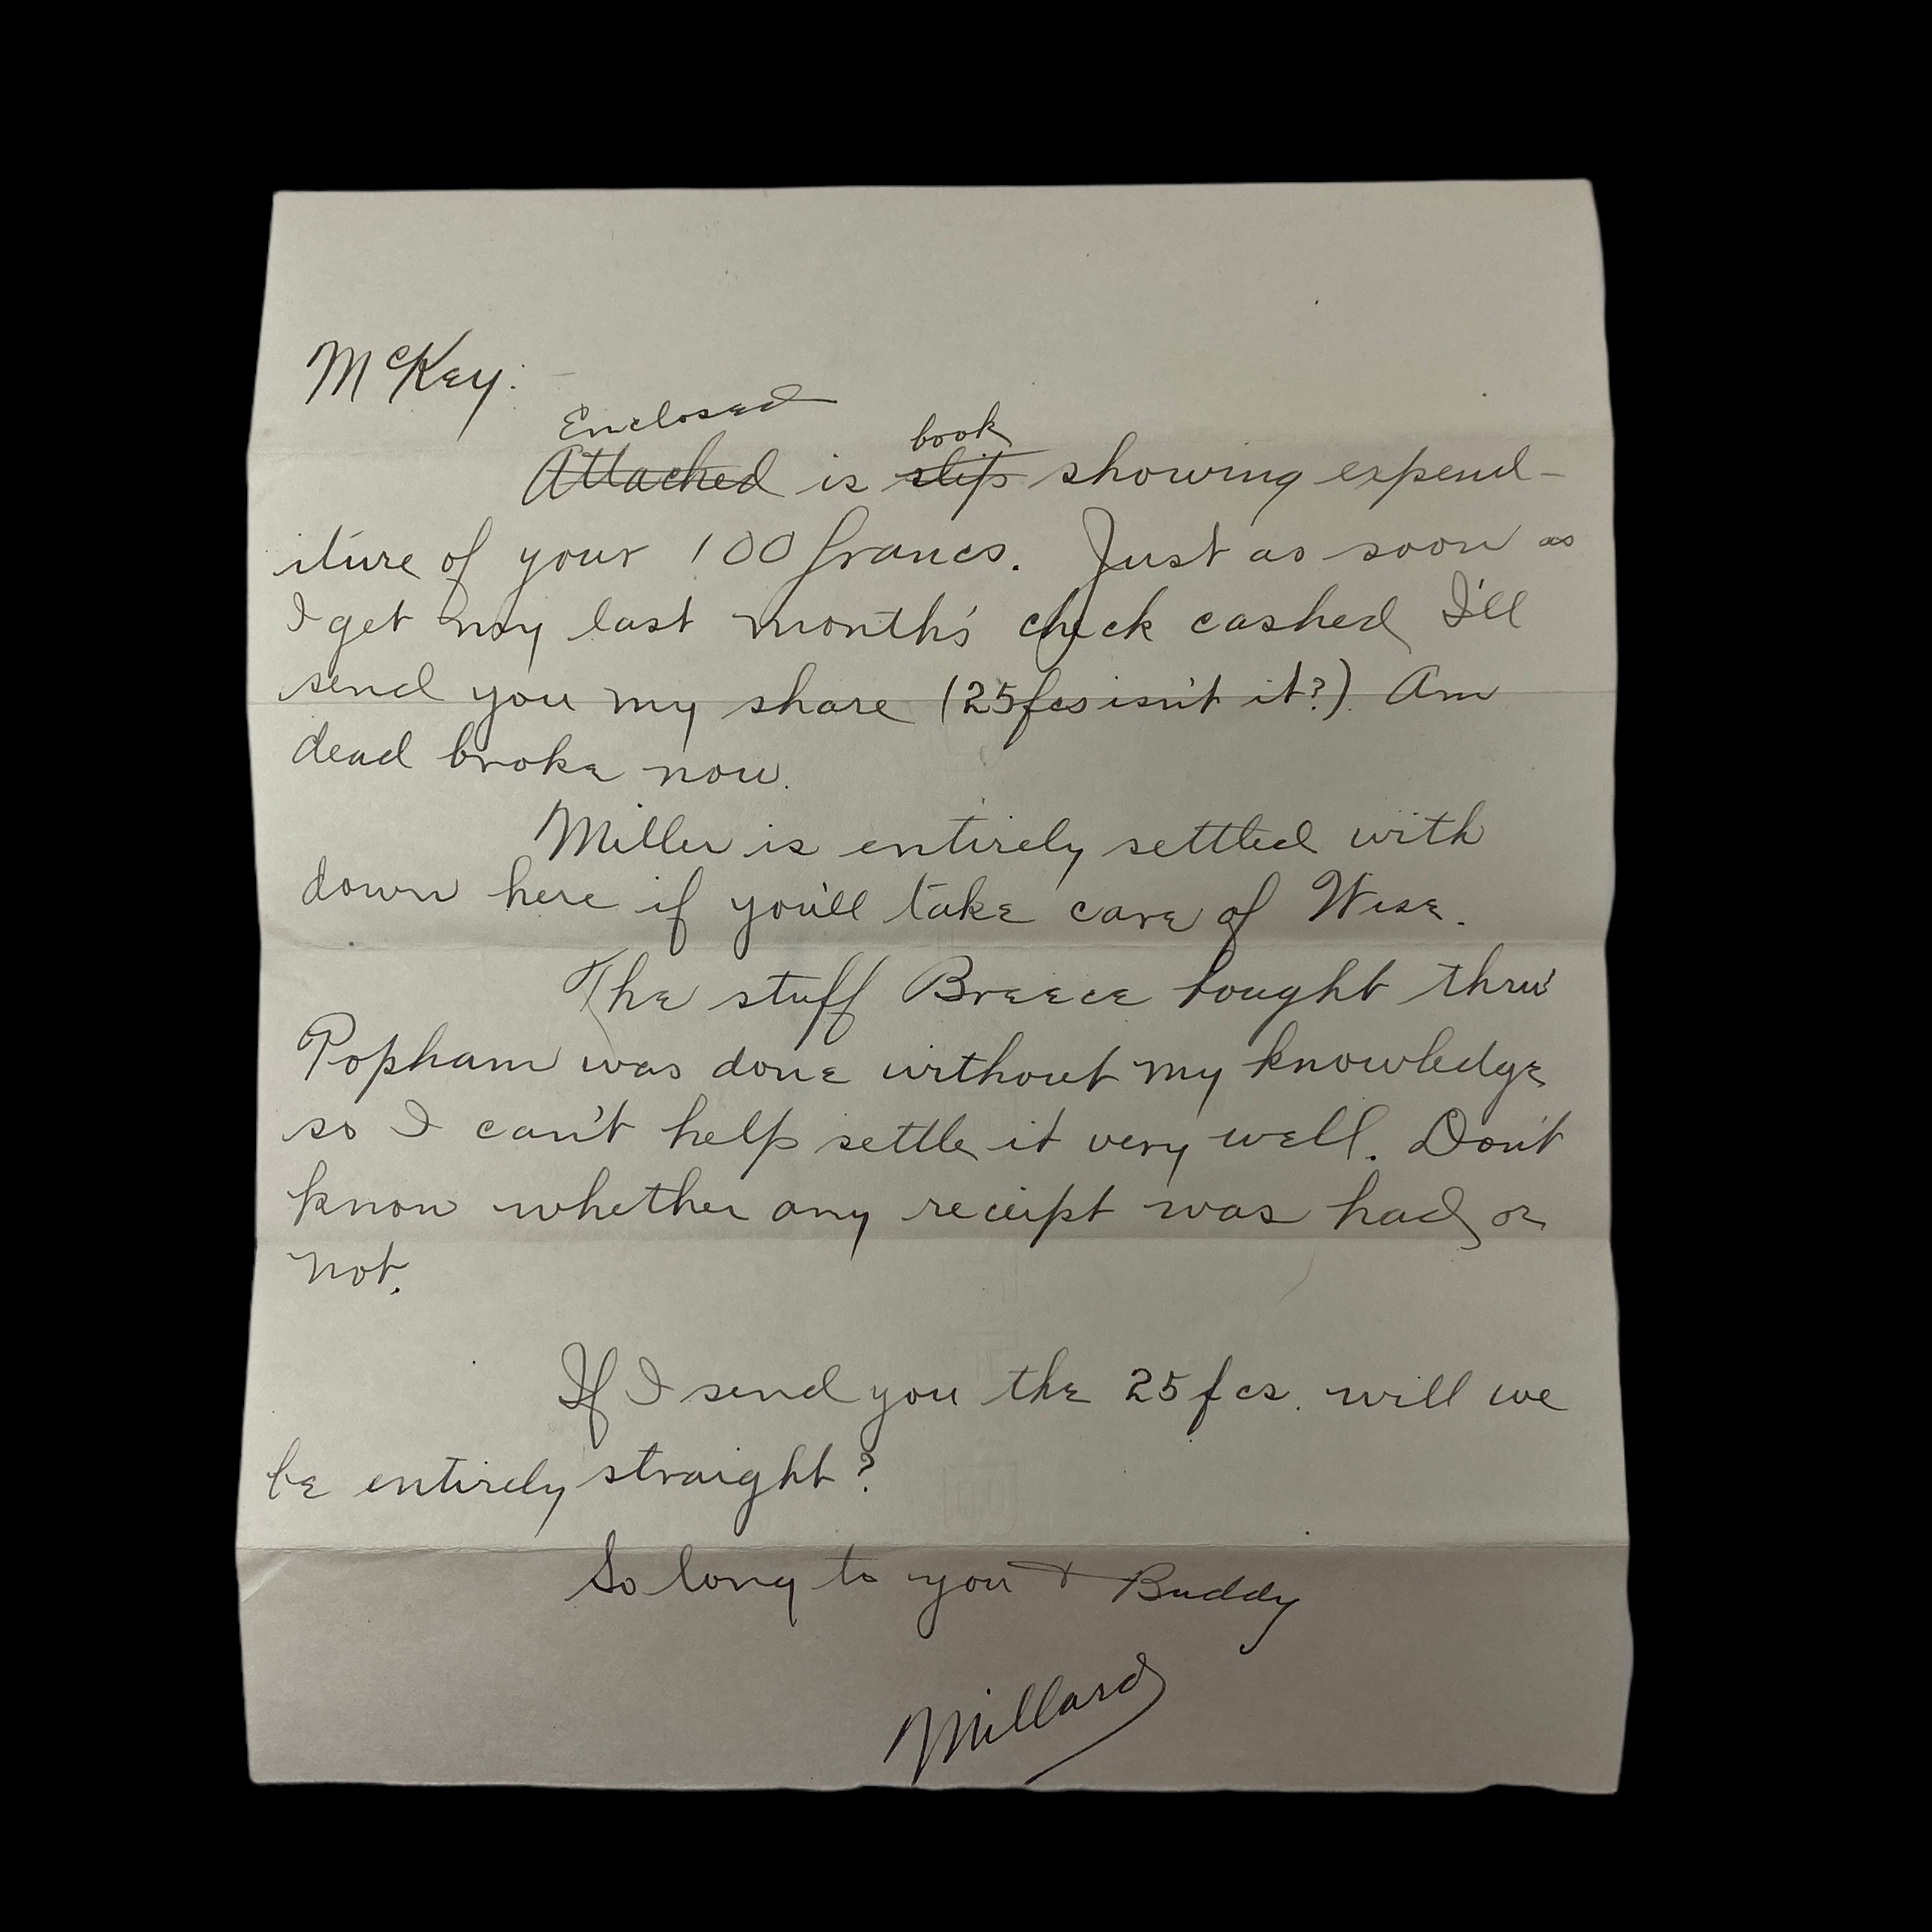 McKey:
Enclosed book
Attached is slip showing expend-
iture of your 100 francs. Just as soon as
I get my last month's check cashed I'll
send you my share (25fcs isn't it?). Am
dead broke now.
Miller is entirely settled with
down here if you'll take care of Wise.
The stuff Breece bought thru'
Popham was done without my knowledge
so I can't help settle it very well. Don't
know whether any receipt was had or
not.
If I send you the 25 fcs. will we
be entirely straight?
So long to you & Buddy
Millard